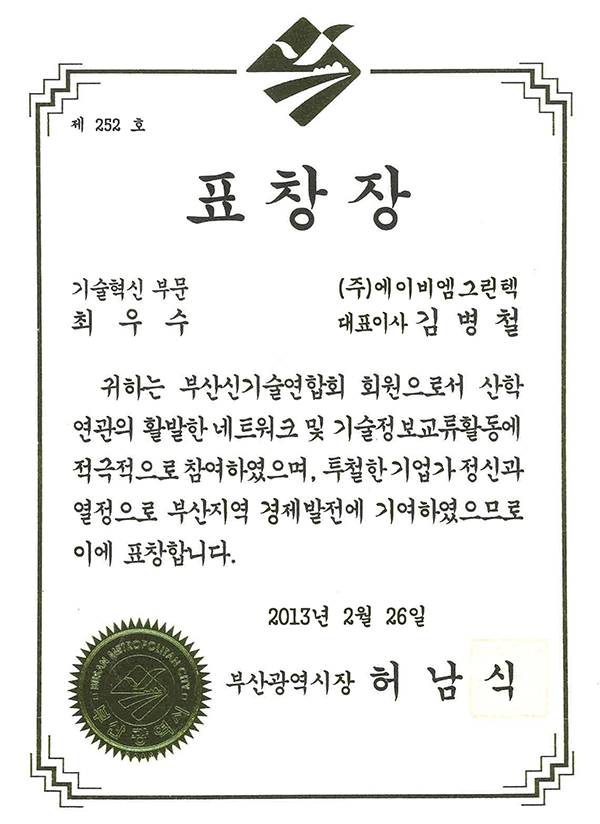 제 252 호
표창장
기술혁신 부문 (주)에이비엠그린텍
최우수 대표이사 김병철
귀하는 부산신기술연합회 회원으로서 산학
연관의 활발한 네트워크 및 기술정보교류활동에
적극적으로 참여하였으며, 투철한 기업가 정신과
열정으로 부산지역 경제발전에 기여하였으므로
이에 표창합니다.
2013년 2월 26일
부산광역시장 허남식
BUSAN METROPOLITAN CITY
부산광역시